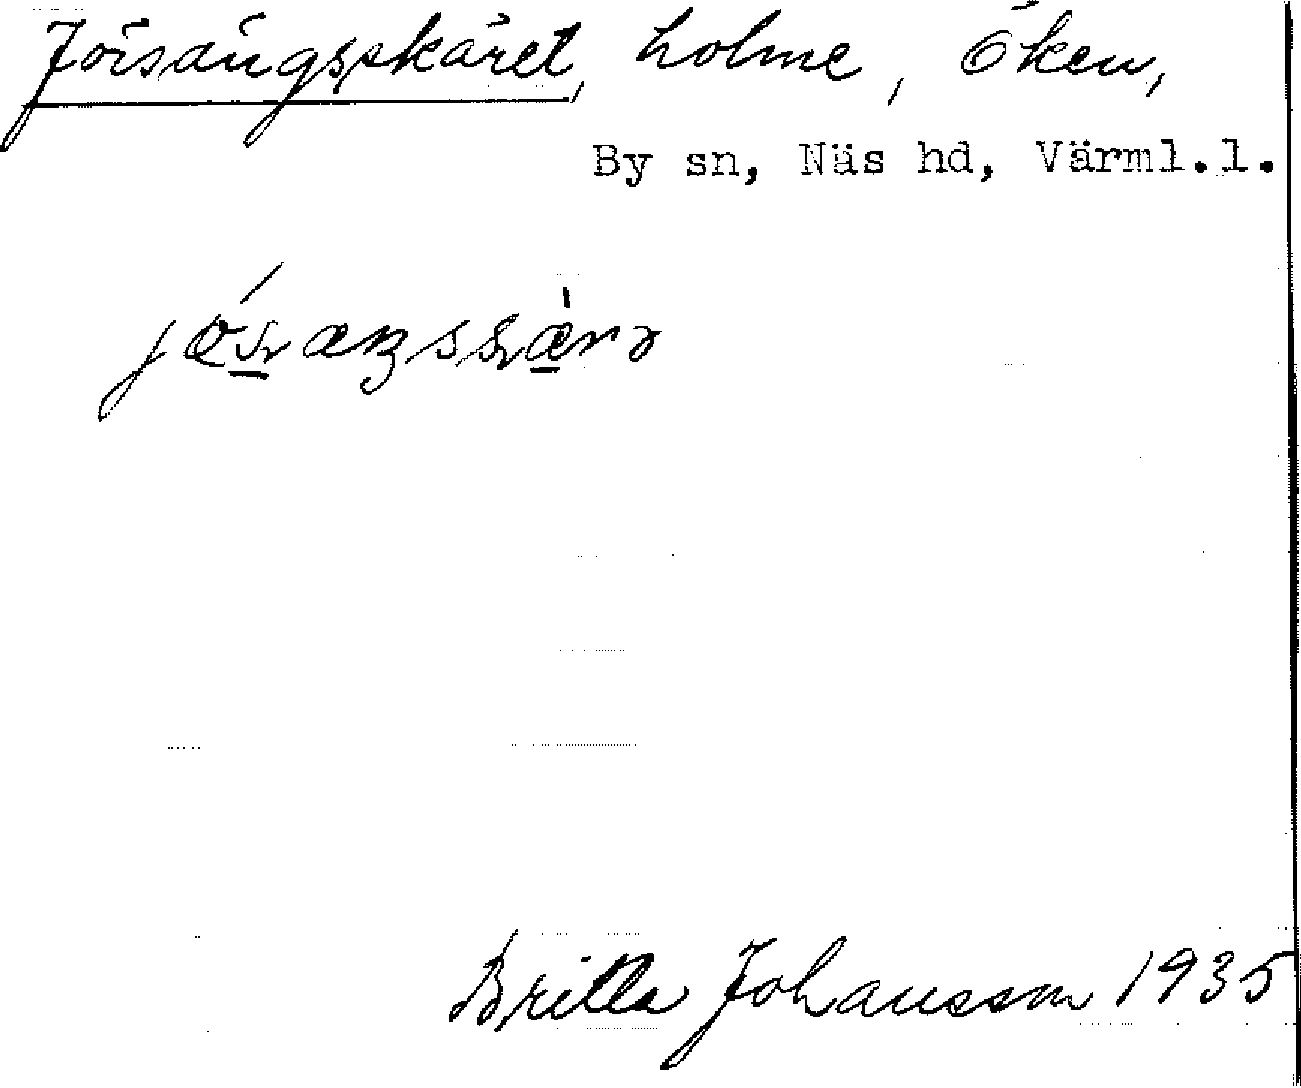 Jörsängsskäret, holme, Öken,
By sn, Näs hd, Värml.l.
Britta Johansson 1935